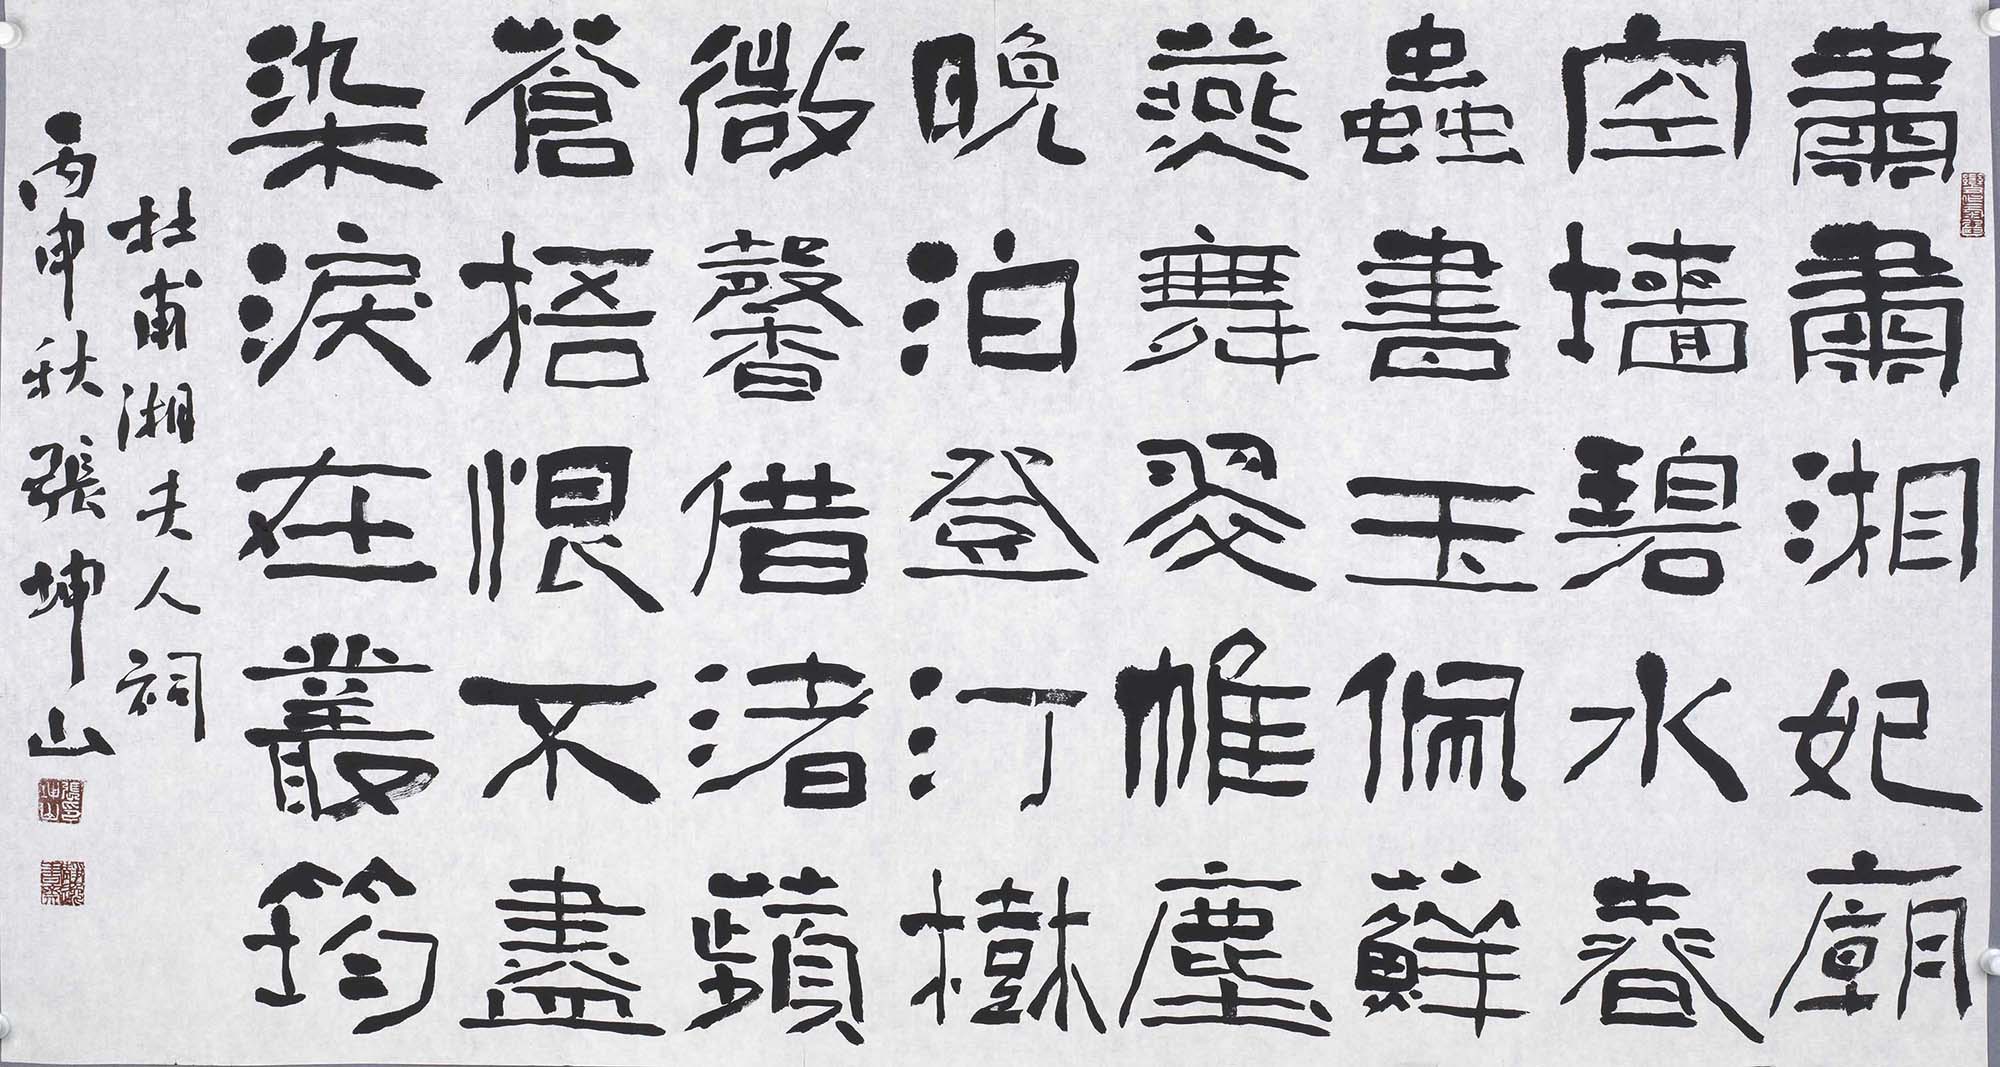 肅肅湘妃廟
空墻碧水春
蟲書玉佩蘚
燕舞翠帷塵
晚泊登汀樹
微馨借渚蘋
蒼梧恨不盡
染淚在叢筠
杜甫湘夫人祠
丙申秋張坤山